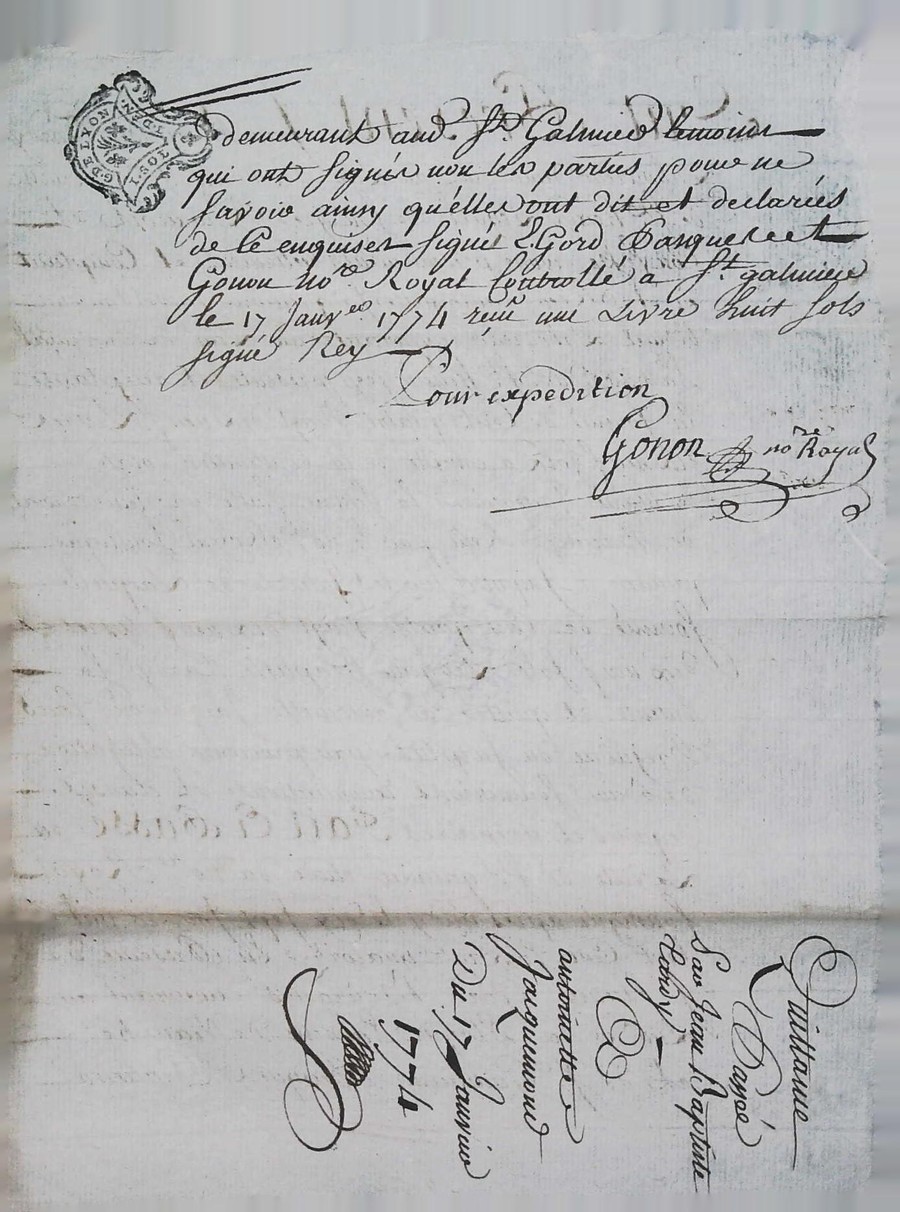 G. DE LYON
1. SOL
DEN.
demeurant aud. St Galmier temoins
qui ont signés non les parties pour ne
savoir ainsy qu'elles ont dit et declarées
de ce enquises signé Gord Pasquere et
Gonon nore Royal Controllé a St galmier
le 17 Janvier 1774 reçu une Livre huit sols
signé Rey
Pour expedition
Gonon nore Royal
Quittance
Payé
Par Jean Baptiste
a
antoinette
Jacquemond
Du 17 Janvier
1774